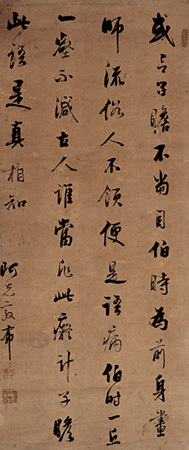 或言子瞻不當目伯時為前身畫
師流俗人不領便是語病伯時一丘
一壑不減古人誰當作此癡計子瞻
此語是真相知
阿克敦